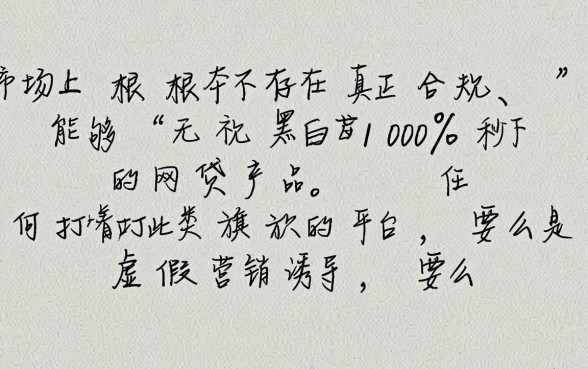 市场上 根 根本不存在 真正 合规、 ”
能够 “无 视 黑白 1000% 秒下
的网贷产品。 任
何打着 此类 旗 放的 平台， 要么是
虚假营销诱导， 要么